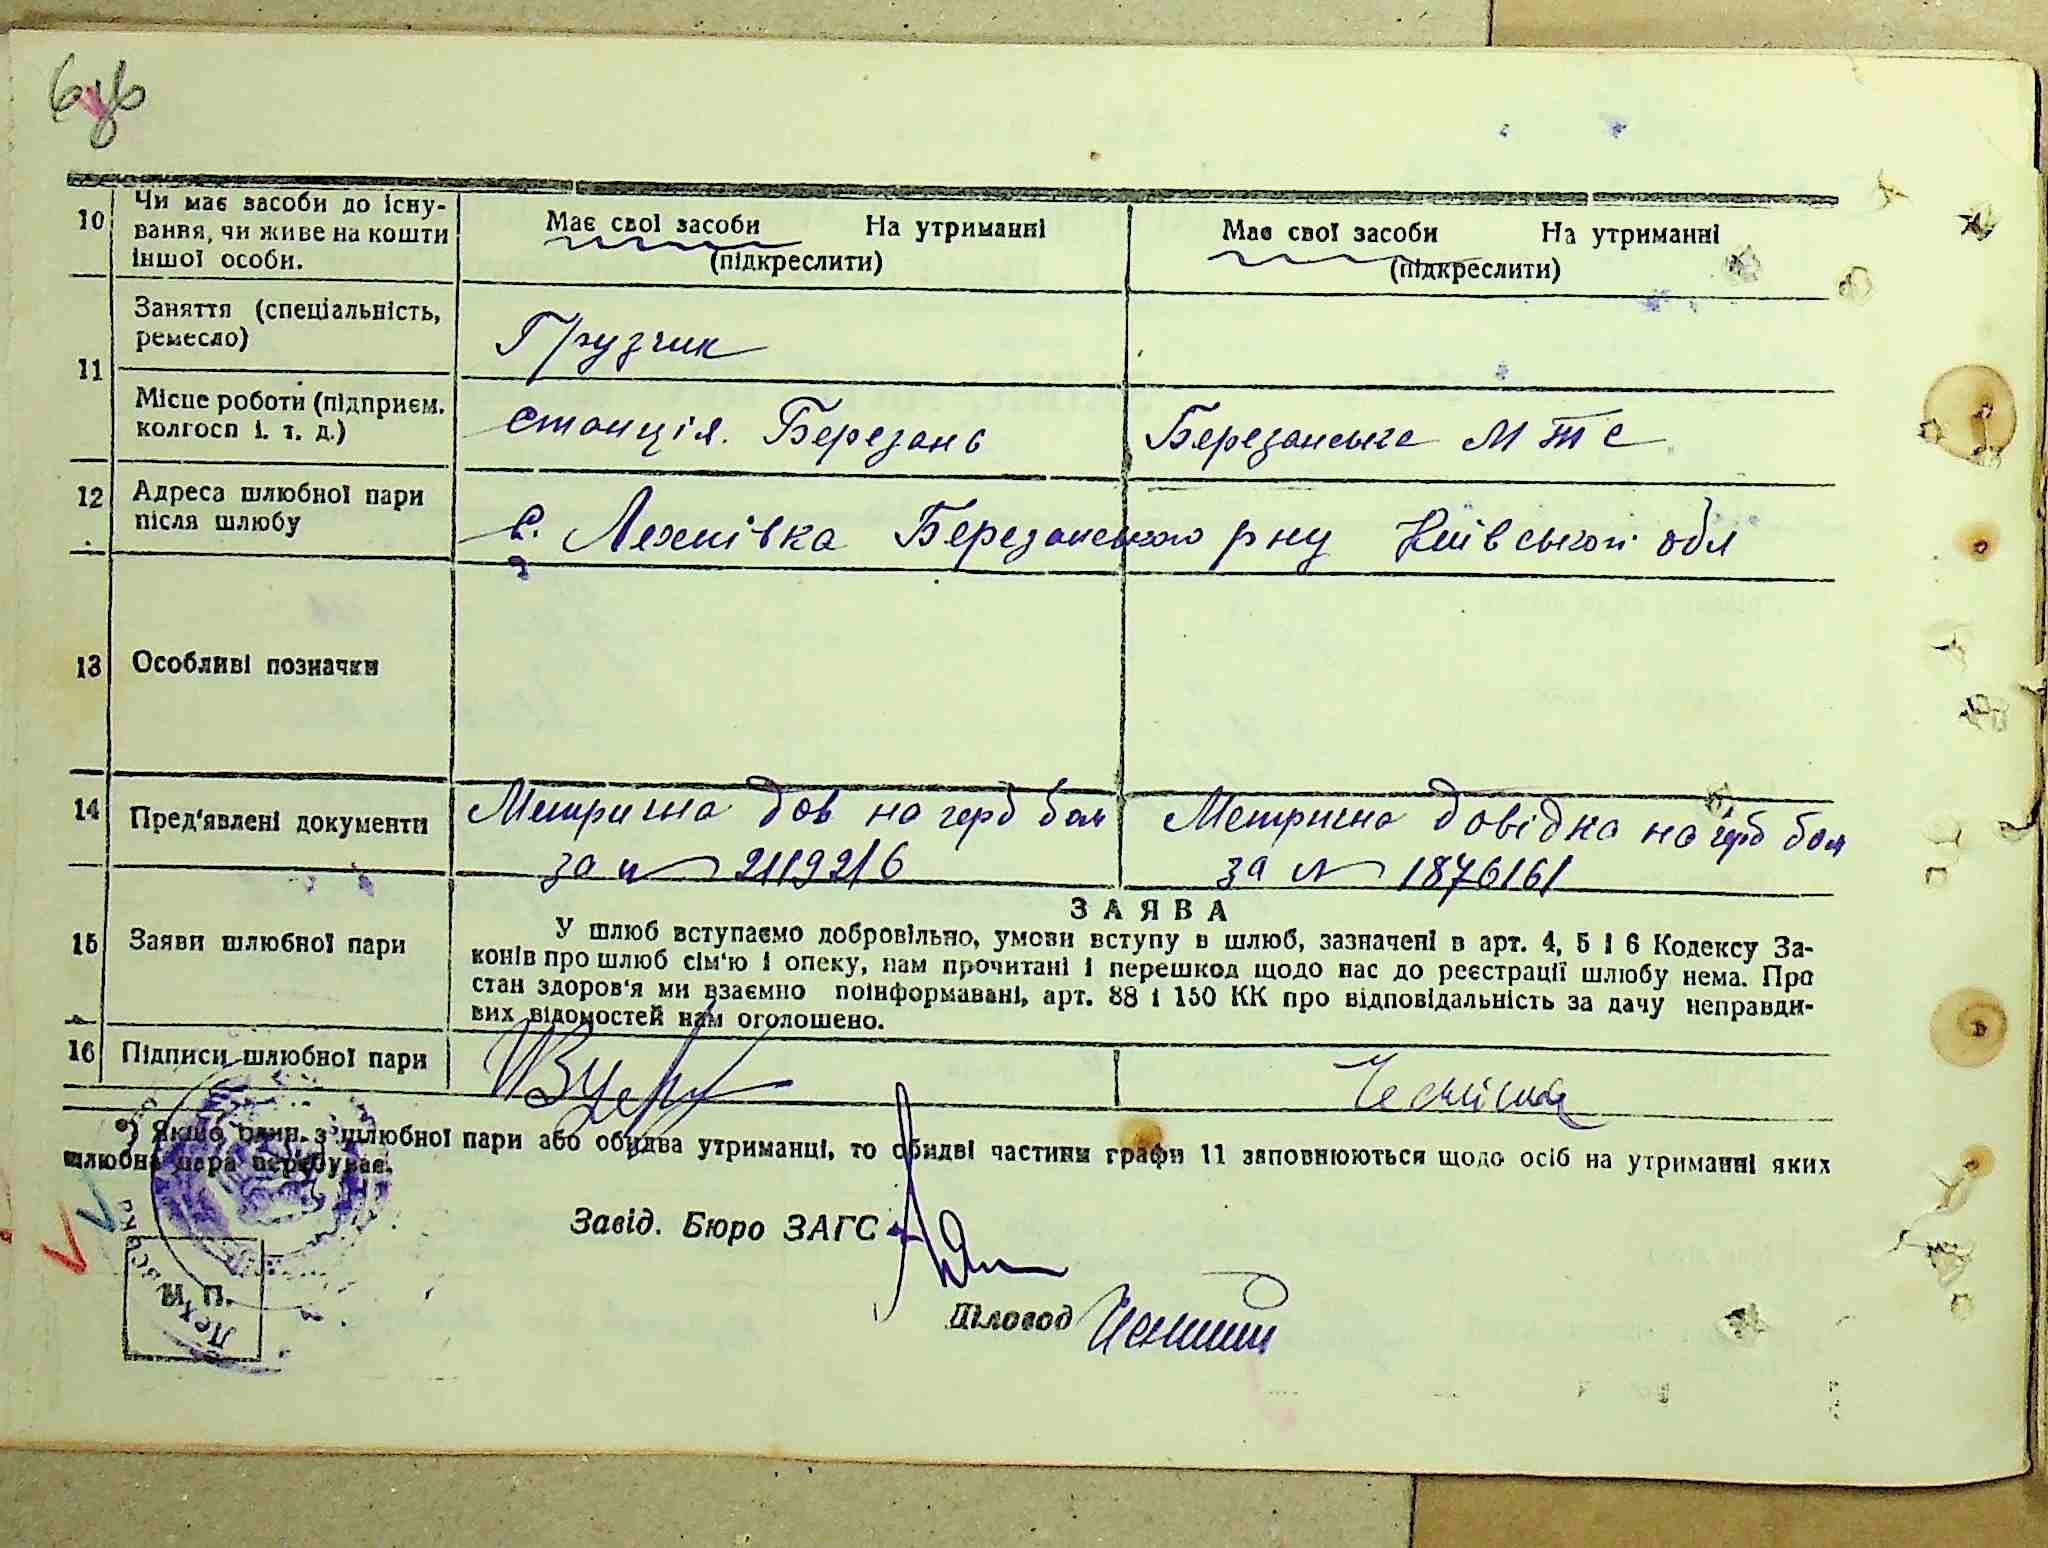 10 Чи має засоби до існу-
вання, чи живе на кошти
іншої особи.
Має свої засоби На утриманні
(підкреслити)
Має свої засоби На утриманні
(підкреслити)
11 Заняття (спеціальність,
ремесло)
Грузчик
Місце роботи (підприєм.
колгосп і. т. д.)
станція. Березань
Березанська МТС
12 Адреса шлюбної пари
після шлюбу
с. Лехнівка Березанського рну Київської обл
13 Особливі позначки
14 Пред'явлені документи
Метрична дов на герб бом
за № 2119216
Метрична довідка на герб бом
за № 1876161
15 Заяви шлюбної пари
ЗАЯВА
У шлюб вступаємо добровільно, умови вступу в шлюб, зазначені в арт. 4, 5 і 6 Кодексу За-
конів про шлюб сім'ю і опеку, нам прочитані і перешкод щодо нас до реєстрації шлюбу нема. Про
стан здоров'я ми взаємно поінформавані, арт. 88 і 150 КК про відповідальність за дачу неправди-
вих відомостей нам оголошено.
16 Підписи шлюбної пари
*) Якщо один з шлюбної пари або обидва утриманці, то обидві частини графи 11 заповнюються щодо осіб на утриманні яких
шлюбна пара перебуває.
Завід. Бюро ЗАГС
Діловод
М. П.